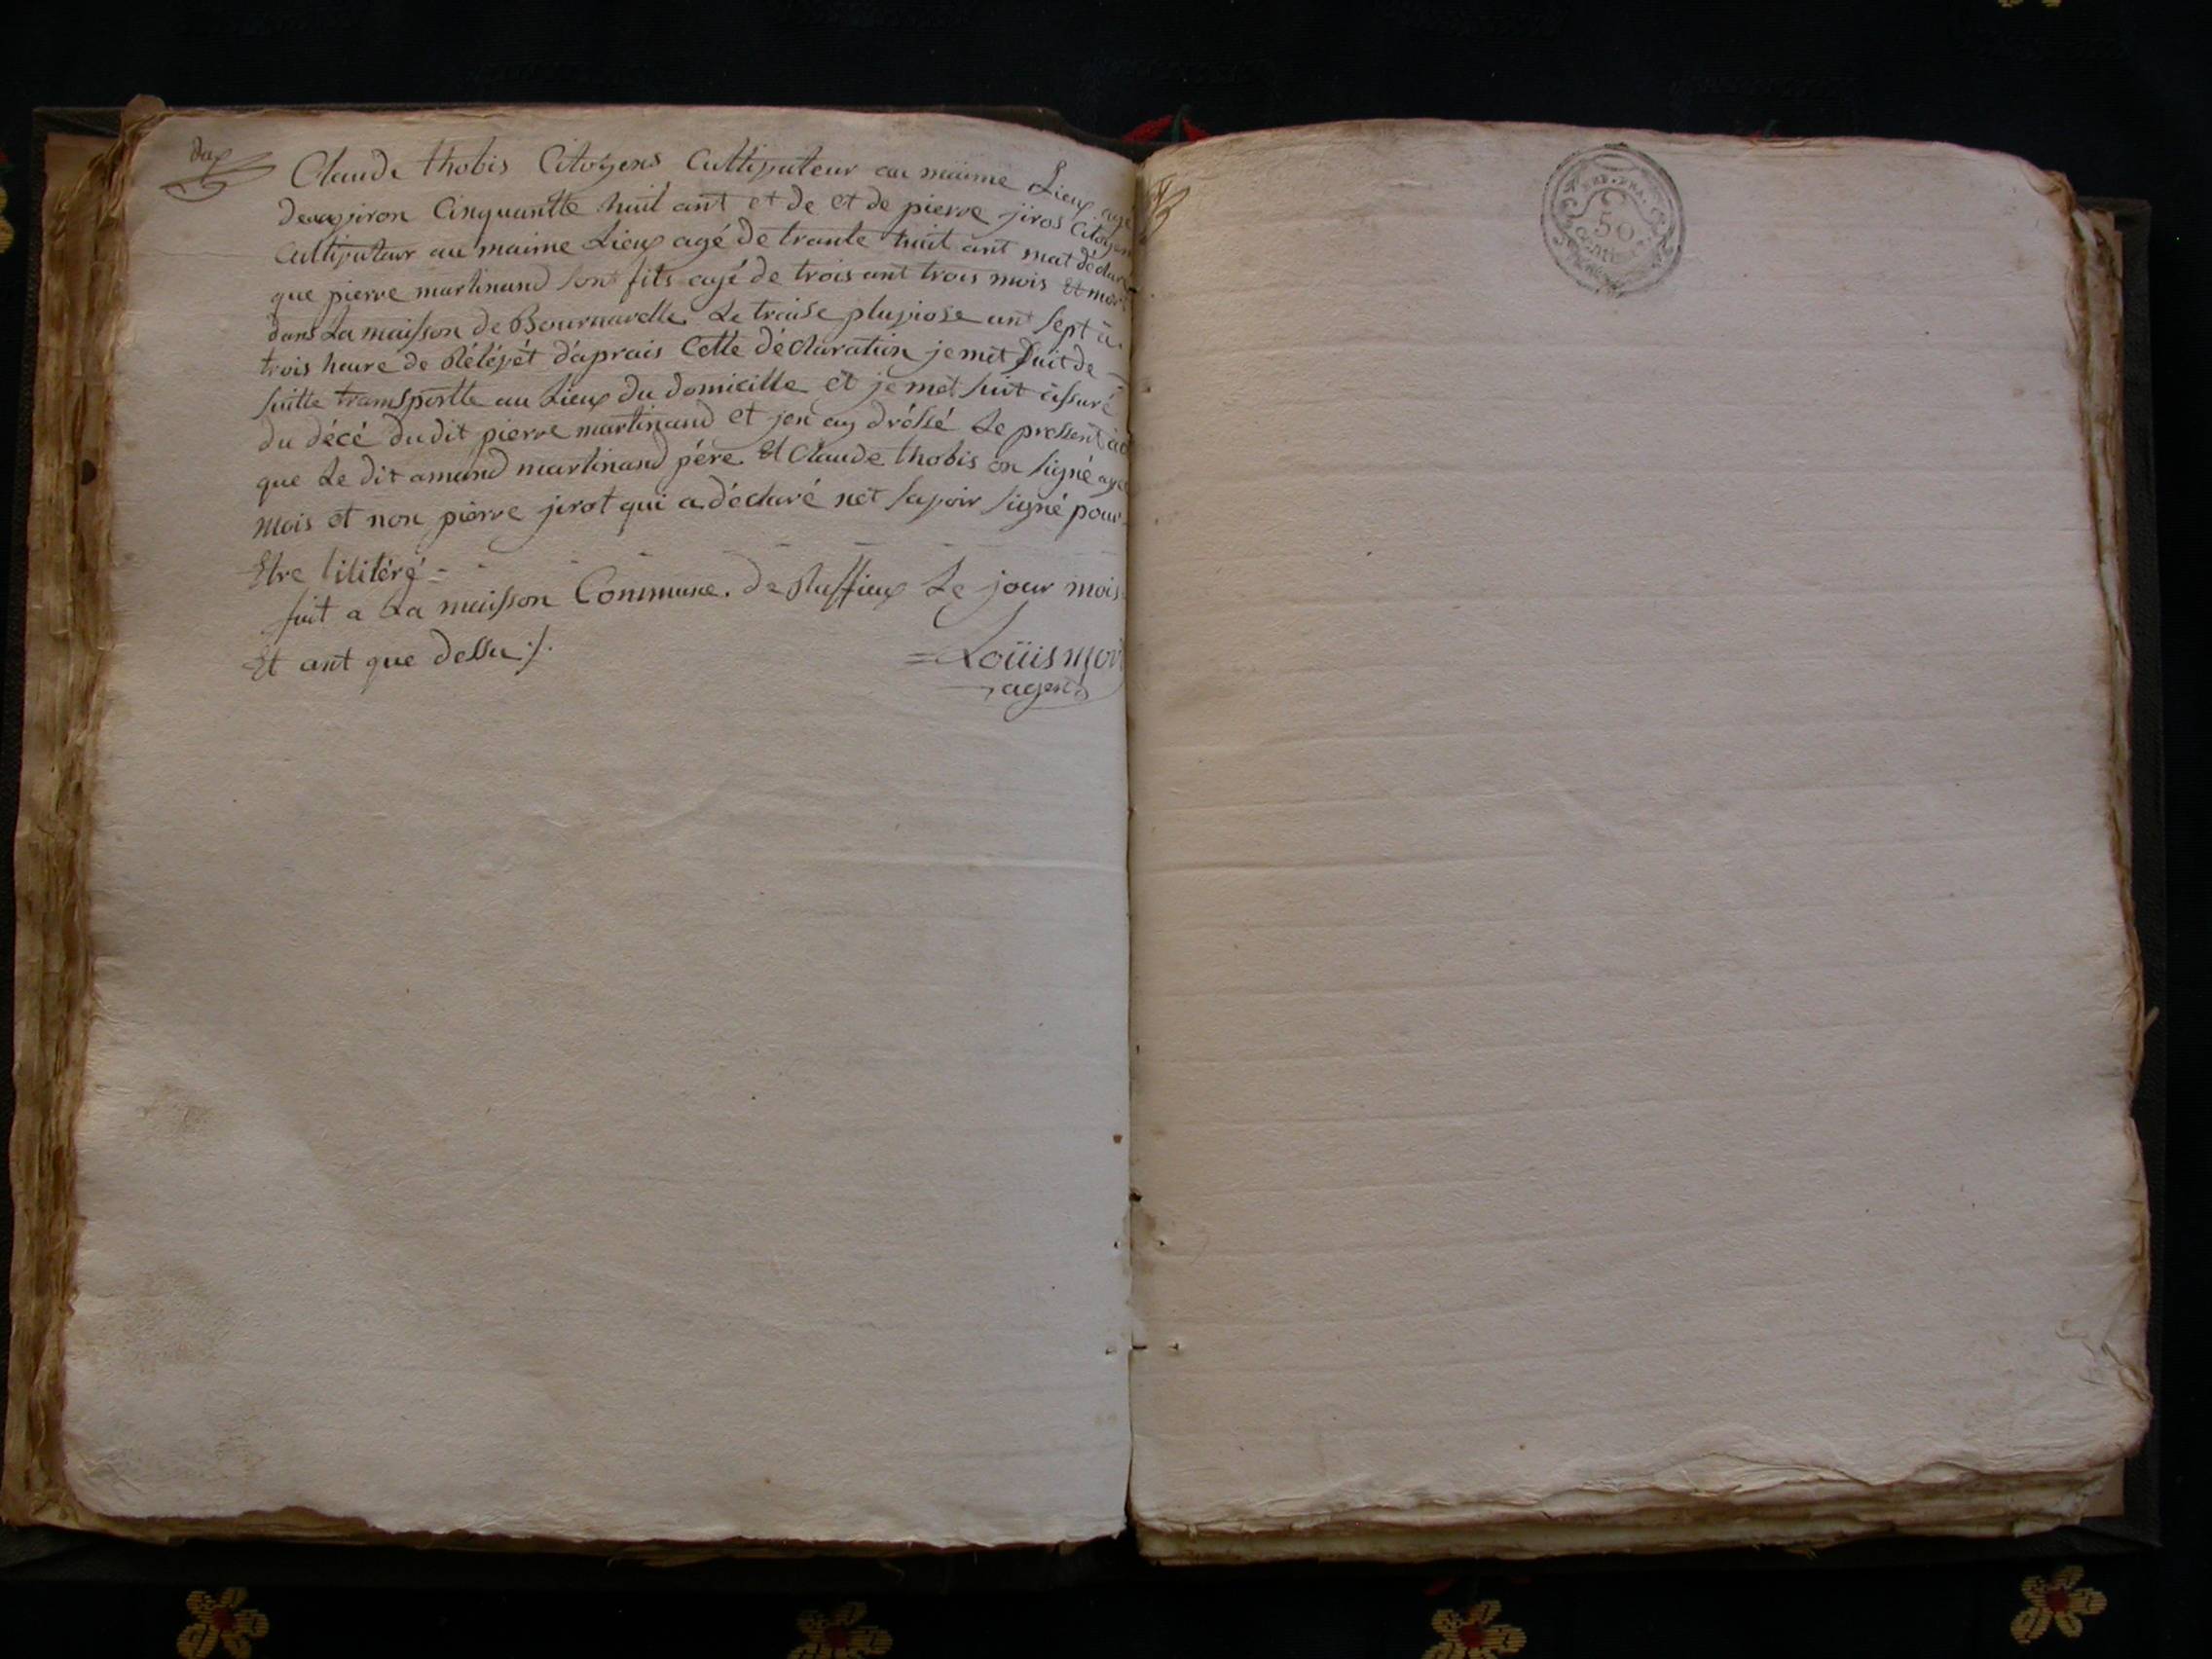 Claude thobis Citoyens Cultivateur au maime Lieux agé
denviron Cinquantte huit ant et de et de pierre jiros Citoyen
Cultivateur au maime Lieux agé de trante huit ant mat déclar
que pierre martinand sont fits agé de trois ant trois mois et mor
dans La maisson de Bournavelle Le traise pluviose ant sept à
trois heure de Rélévét d'aprais Cette déclaration je met suit de
suitte transportte au Lieux du domicille et je met suit assuré
du décé dudit pierre martinand et jen ay dréssé Le pressent ac
que Le dit amand martinand pére Et Claude thobis on signé avec
mois et non pierre jirot qui a déclaré net savoir signé pour
Etre litéré
fait a La maisson Commune de Ruffieux Le jour mois
Et ant que dessu ./.
Loüis mor
agent
50
centi